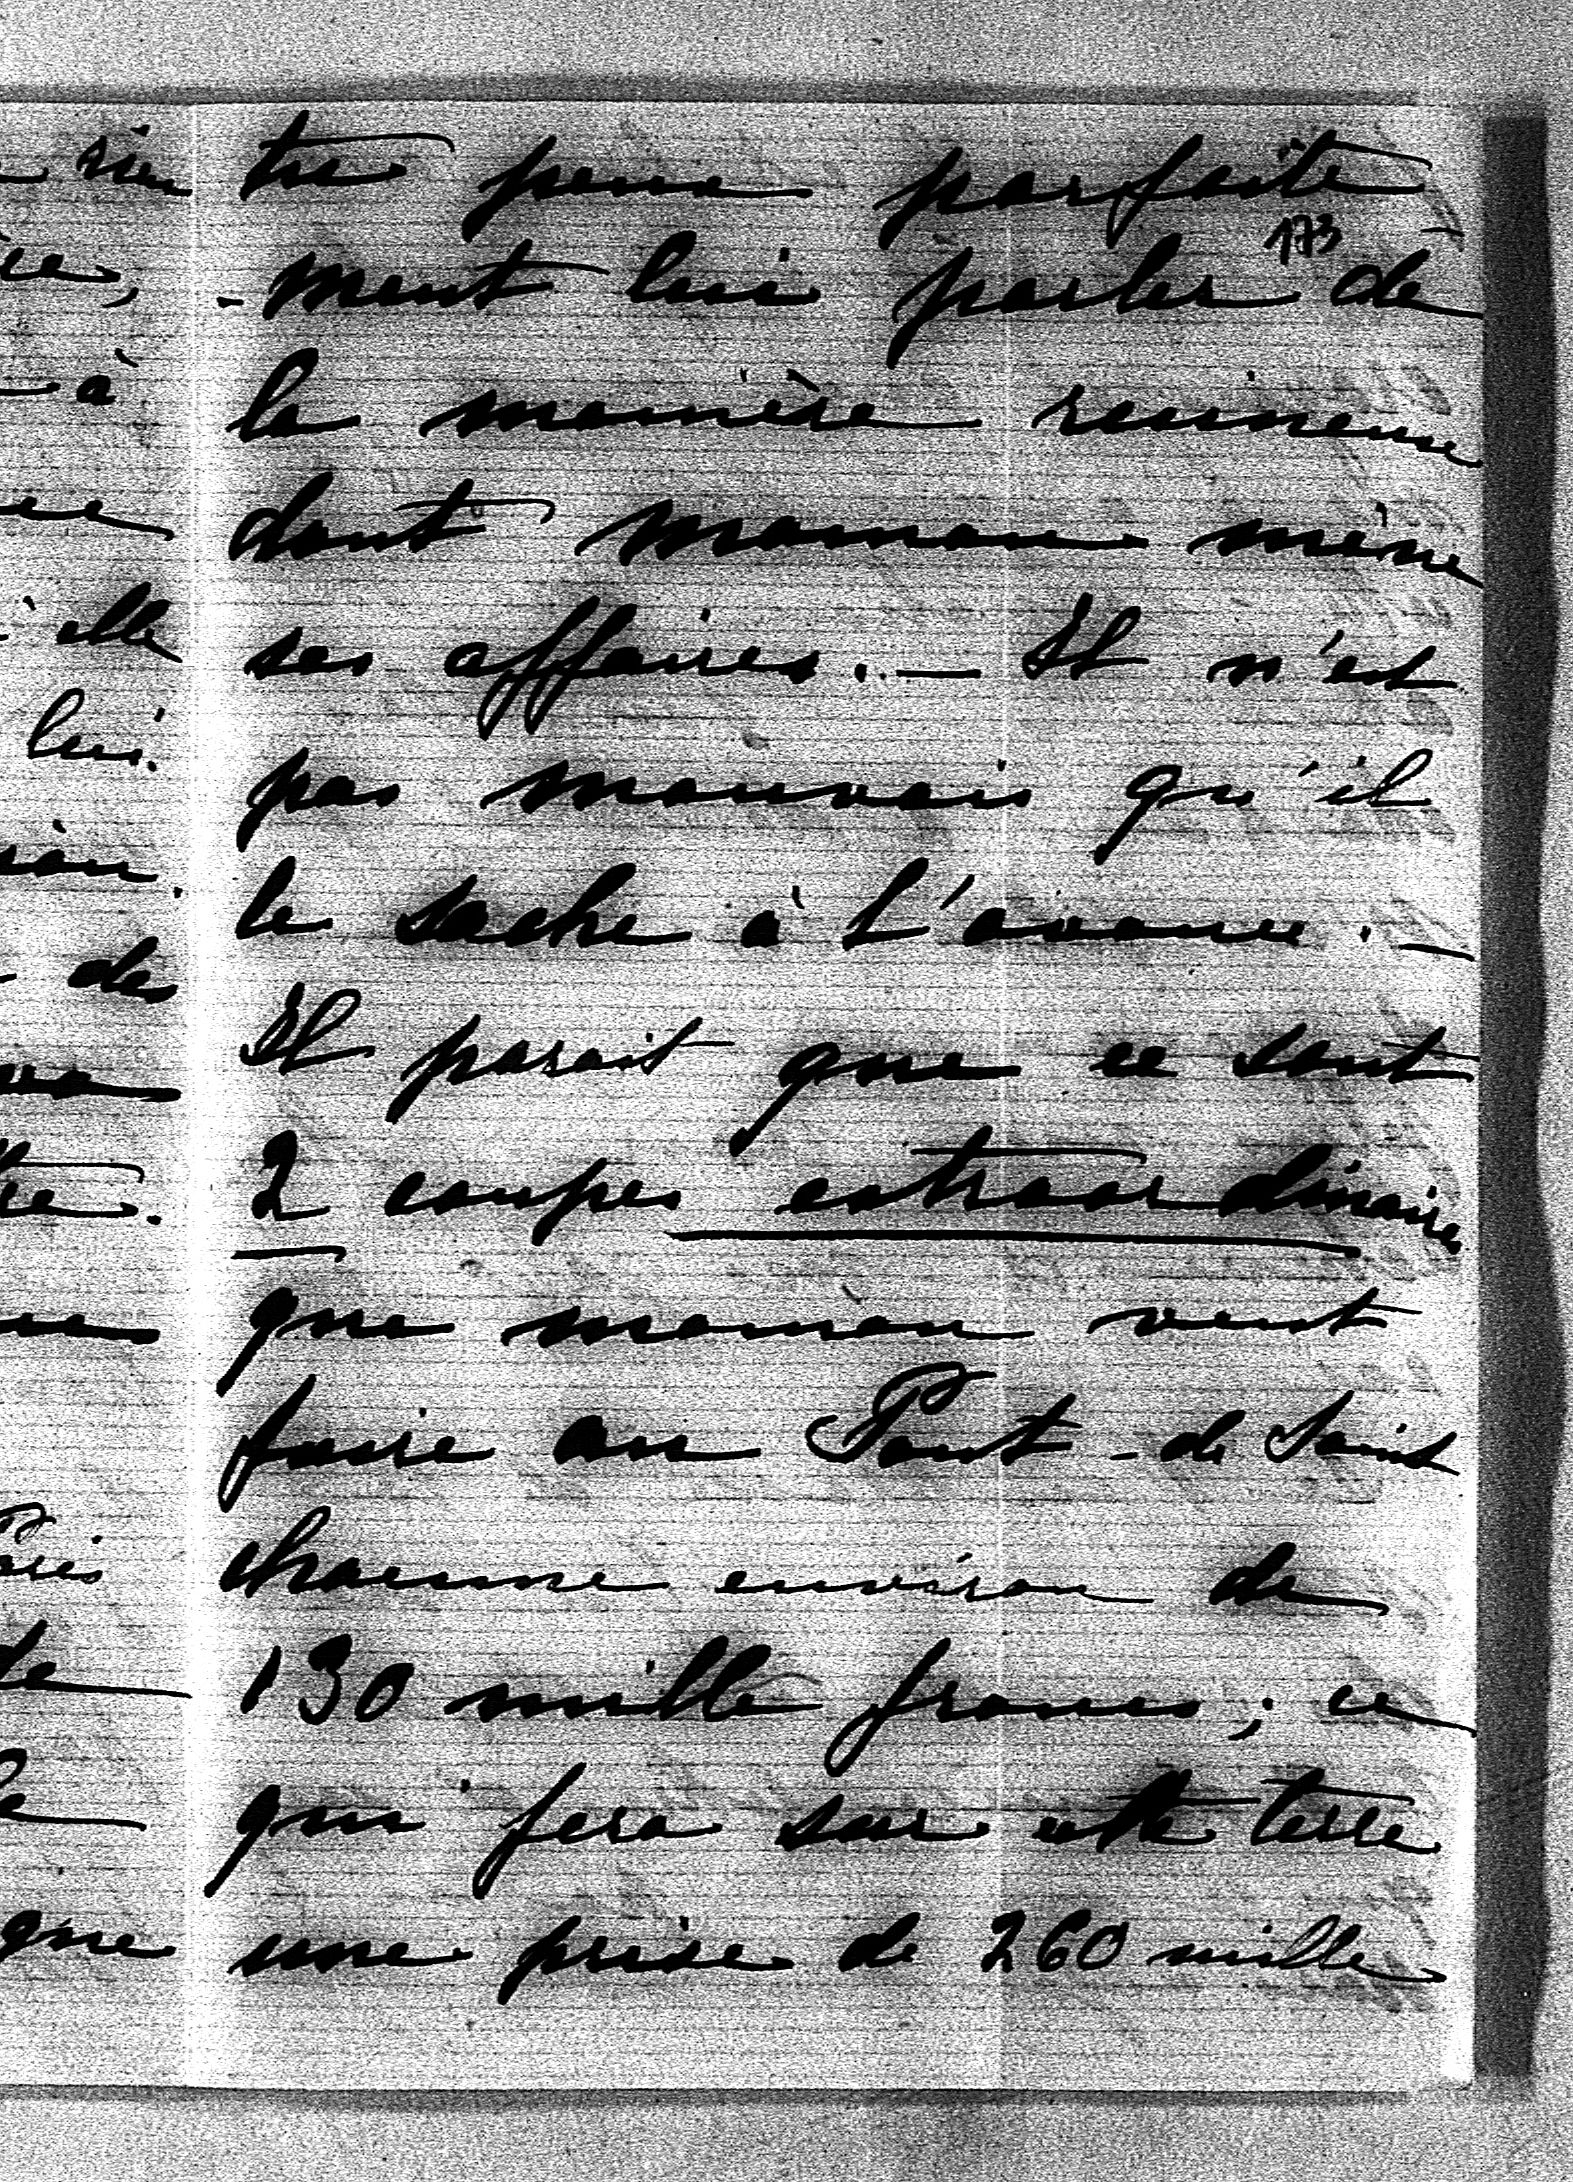 rien
tre peux parfaite
173
- ment lui parler de
la manière ruineuse
dont maman mène
ses affaires. — Il n'est
pas mauvais qu'il
le sache à l'avance. —
Il parait que ce sont
2 coupes extraordinaires
que maman veut
faire au Pont-de Saint
chacune environ de
130 mille francs ; ce
qui fera sur cette terre
une prise de 260 mille
à
elle
lui.
des
de
que